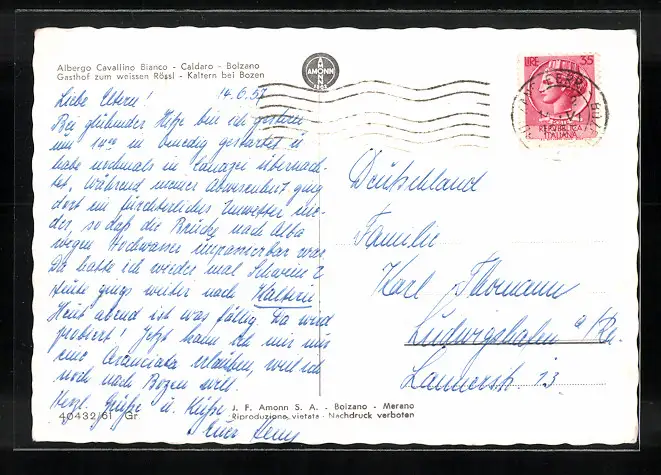 Albergo Cavallino Bianco - Caldaro - Bolzano
Gasthof zum weissen Rössl - Kaltern bei Bozen
AMONN
LIRE 35
REPVBBLICA
ITALIANA
Liebe Eltern! 14.6.57
Bei glühender Hitze bin ich gestern
um 10 in Venedig gestartet u.
habe nochmals in übernach-
tet. Während meiner Abwesenheit ging
dort ein fürchterliches Unwetter nie-
der, so daß die Brücke nach Alba
wegen Hochwasser unpassierbar war.
Da hatte ich wieder mal Schwein!
Heute gings weiter nach Kaltern.
Heut abend ist was fällig. Da wird
probiert! Jetzt kann ich mir nur
eine Aranciata erlauben, weil ich
noch nach Bozen will.
Herzl. Grüße u. Küße
Euer
Deutschland
Familie
Karl Thomann
Ludwigshafen a/Rh.
13.
40432/61 Gr
J. F. Amonn S. A. - Bolzano - Merano
Riproduzione vietata - Nachdruck verboten